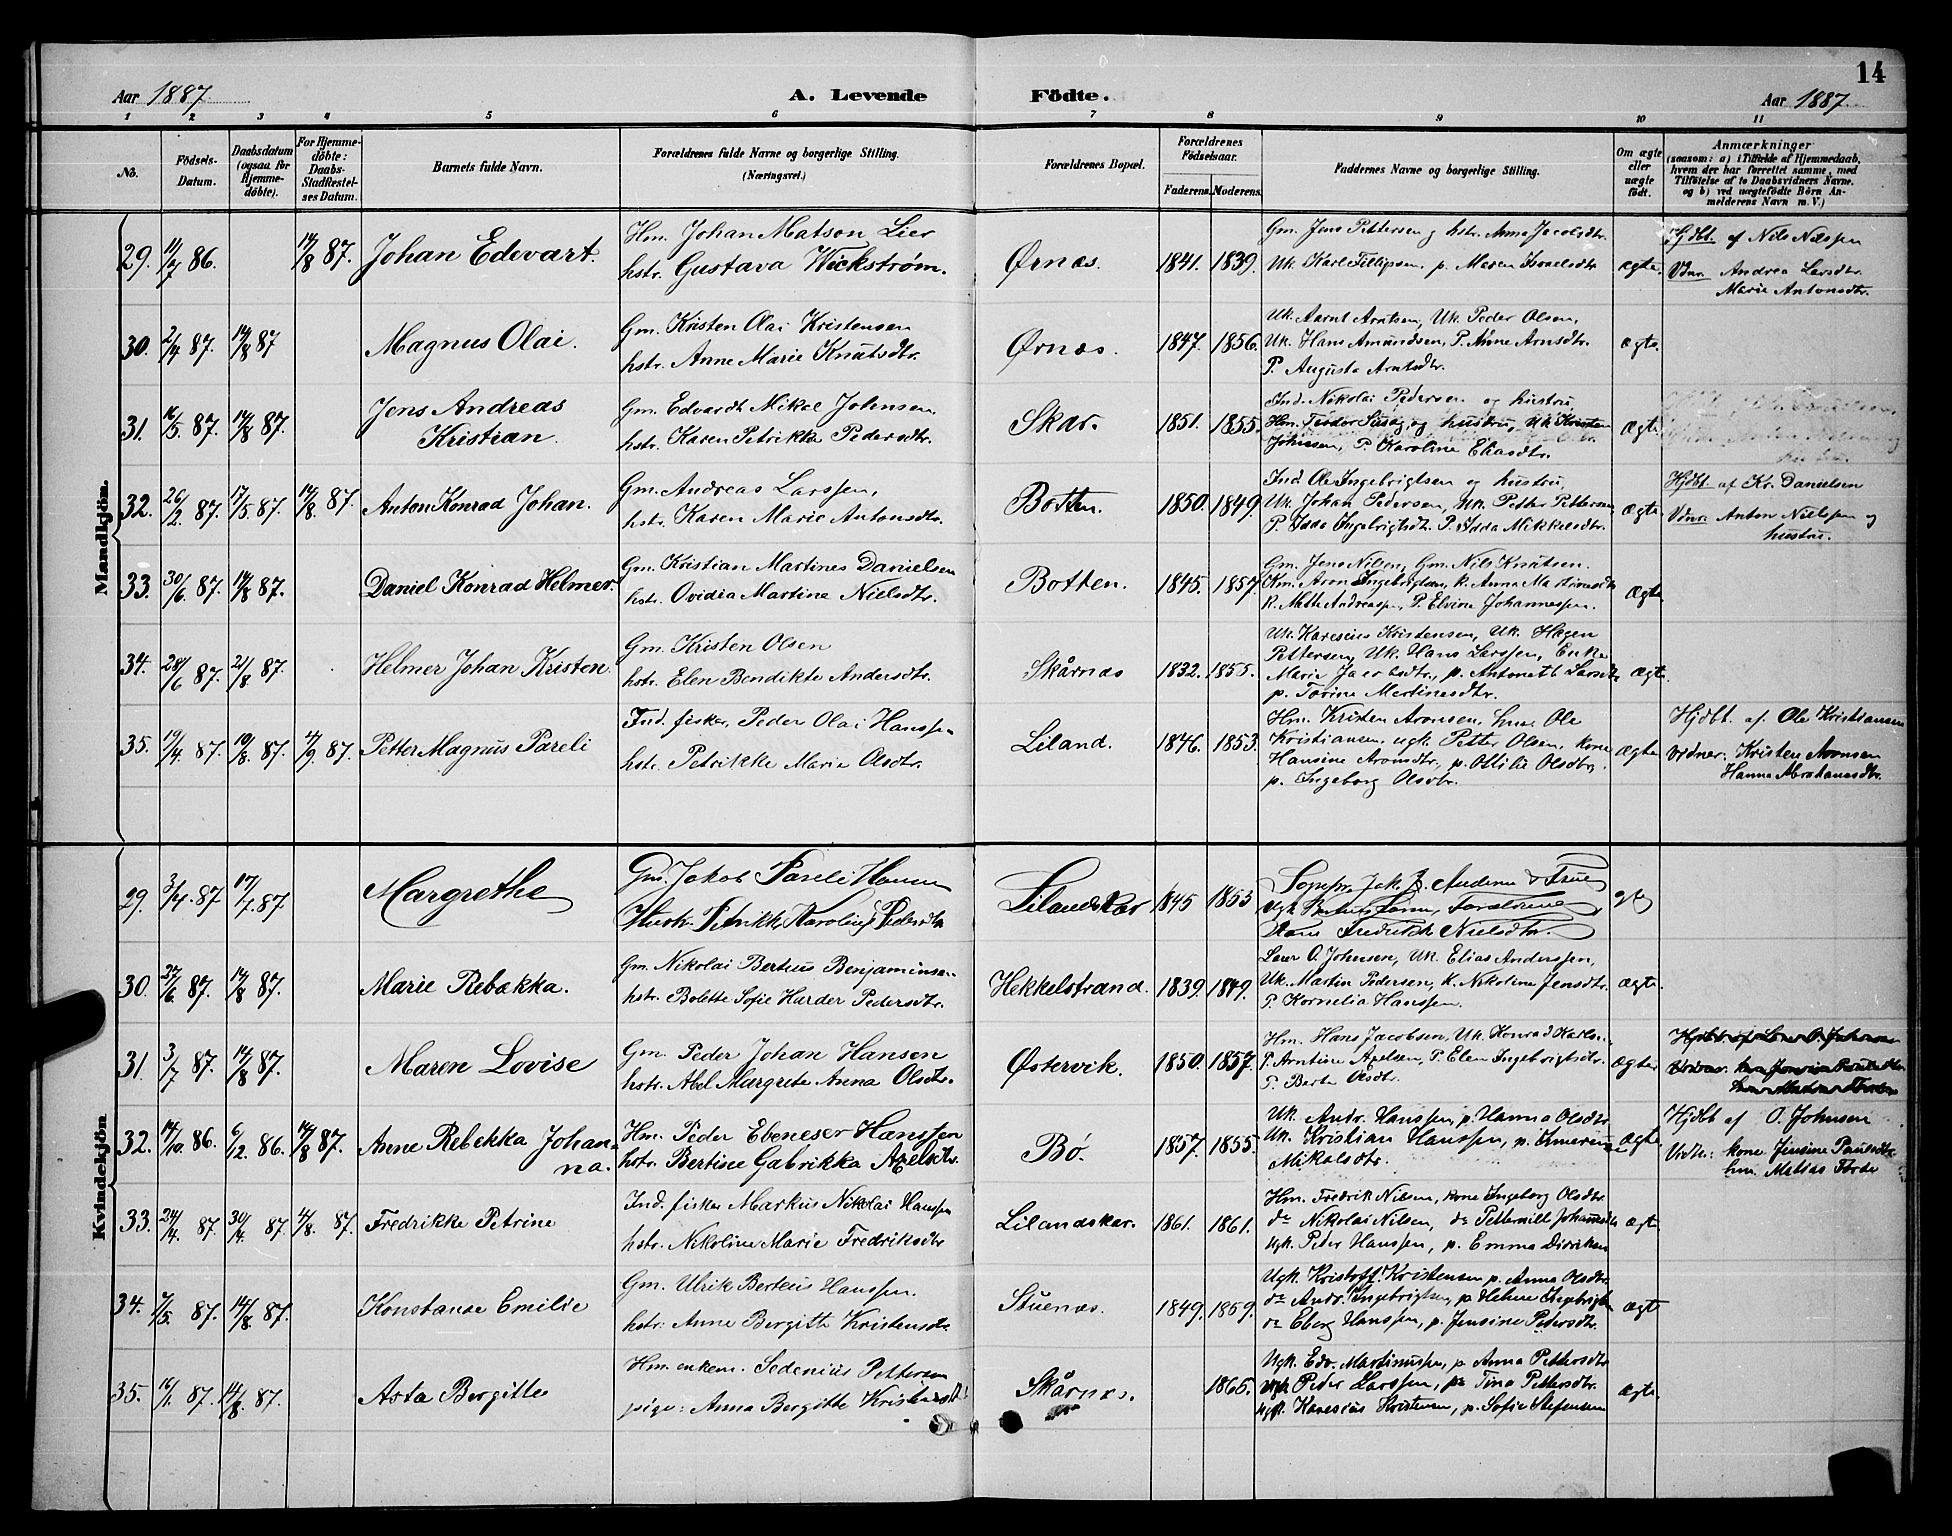 14
Aar 1887. A. Levende Födte. Aar 1887.
1 2 3 4 5 6 7 8 9 10 11
No.
Födsels-
Datum.
Daabsdatum
(ogsaa for
Hjemme-
döbte).
For Hjemme-
döbte:
Daabs-
Stadfestel-
ses Datum.
Barnets fulde Navn.
Forældrenes fulde Navne og borgerlige Stilling.
(Næringsvei.)
Forældrenes Bopæl.
Forældrenes
Födselsaar.
Faderens. Moderens.
Faddernes Navne og borgerlige Stilling.
Om ægte
eller
uægte
födt.
Anmærkninger
(saasom: a) i Tilfælde af Hjemmedaab,
hvem der har forrettet samme, med
Tilföielse af to Daabsvidners Navne.
og b) ved uægtefödte Börn An-
melderens Navn m. V.)
Mandkjön.
29. 11/7 86. 14/8 87. Johan Edevart.
Hm. Johan Matson Lier
hstr. Gustava Wickstrøm.
Ørnæs. 1841. 1839.
Gm. Jens Pettersen og hstr. Anna Jacobsdtr.
Uk. Karl Fillipsen, p. Maren
ægte.
Hjdbt. af Nils Nilssen
Vdnr. Andrea Larsdtr.
Marie Antonsdtr.
30. 2/4 87. 14/8 87 Magnus Olai.
Gm. Kristen Olai Kristensen
hstr. Anne Marie Knutsdtr.
Ørnæs. 1847. 1856.
Uk. Aarnt Arntsen, Uk. Peder Olsen,
Uk. Hans Amundsen, P. Anne Arnsdtr.
P. Augusta Arntsdtr.
ægte.
31. 16/5. 87. 14/8 87. Jens Andreas
Kristian.
Gm. Edvardt Mikal Johnsen,
hstr. Karen Petrikka Pedersdtr.
Skar. 1851. 1855.
Ind. Nikolai Pedersen og hustru
Hm. Teodor og hustru, Uk Kristen
Johnsen, P. Karoline Eliasdtr.
Ægte
32. 26/2. 87. 17/5. 87. 14/8. 87. Anton Konrad Johan.
Gm. Andreas Larssen,
hstr. Karen Marie Antonsdtr.
Botten. 1850. 1849.
Ind Ole Ingebrigtsen og hustru,
Uk. Johan Pedersen, Uk. Petter Pettersen
P. Idda Ingebrigtsdt. P. Idda Mikkelsdtr.
ægte.
Hjdbt af Kr. Danielsen
Vdnr. Anton Nielssen og
hustru.
33. 30/6. 87. 14/8 87. Daniel Konrad Helmer.
Gm. Kristian Martines Danielsen
hstr. Ovidia Martine Nielsdtr.
Botten. 1845. 1857.
Gm. Jens Nilsen, Gm. Nils Knutsen.
Km. Aron Ingebrigtsen, k. Anna Martinesdtr
K. Mette Andreassen, P. Elvine Johannessen.
Ægte.
34. 28/6 87. 21/8 87. Helmer Johan Kristen.
Gm. Kristen Olsen
hstr. Elen Bendikte Andersdtr.
Skårnæs 1832. 1855.
Uk. Karesius Kristensen, Uk. Hagen
Pettersen, Uk. Hans Larssen, Enke
Marie Jacobsdtr., p. Antonett Larsdtr
p. Torine Martinesdtr.
ægte.
35. 19/4. 87. 10/8. 87. 4/9. 87. Petter Magnus Pareli
Ind. fisker, Peder Olai Hanssen
hstr. Petrikke Marie Olsdtr.
Liland. 1846. 1853.
Hm. Kristen Aronsen, hm. Ole
Kristiansen, ugk. Petter Olsen, kone
Hansine Aronsdtr., p. Ottilie Olsdtr,
p. Ingeborg Olsdtr.
ægte
Hjdbt. af. Ole Kristiansen
vidner: Kristen Aronsen
Hanna Abrahamsdtr.
Kvindekjön
29. 3/4. 87 17/7. 87. Margrethe
Gm. Jakob Pareli Hansen
Hustr. Petrikke Karoline Pedersdtr
Lilandskar 1845 1853
Sognepr. Jak. Andersen & Frue
Hans Fredrikke Nielsdtr.
30. 27/6. 87. 14/8 87. Marie Rebakka.
Gm. Nikolai Berteus Benjaminsen
hstr. Bolette Sofie Harder Pedersdtr.
Hekkelstrand. 1839. 1849.
Lærer O. Johnsen, Uk. Elias Anderssen,
Uk. Martin Pedersen, K. Nikoline Jensdtr.
P. Kornelia Hanssen.
ægte.
31. 3/7 87. 14/8 87. Maren Lovise
Gm. Peder Johan Hansen
hstr. Abel Margrete Anna Olsdtr.
Østervik. 1850. 1857.
Hm. Hans Jacobsen, Uk. Konrad Karlsen.
P. Arntine Axelsen, P. Elen Ingebrigtsdtr.
P. Berte Olsdtr.
ægte
32. 14/10. 86. 6/12. 86. 14/8 87. Anne Rebekka Johan-
na.
Hm. Peder Ebeneser Hanssen
hstr. Bertine Gabrikka Axelsdtr.
Bø. 1857. 1855.
Uk. Andr. Hanssen, p. Hanna Olsdtr
Uk. Kristian Hanssen, p.
Mikalsdtr.
ægte
Hjdbt af O. Johnsen
Vidn: kone Jensine Paulsdtr
hm. Matias
33. 24/4. 87. 30/4 87. 4/8. 87. Fredrikke Petrine
Ind. fisker Markus Nikolai Hanssen
hstr. Nikoline Marie Fredriksdtr
Lilandskar. 1861. 1861.
Hm. Fredrik Nilsen, kone Ingeborg Olsdtr.
do Nikolai Nilsen, do Petternill Johansdtr
Ugk. Peter Hanssen, p. Emma Didriksen
ægte.
34. 7/5. 87. 14/8. 87. Konstanse Emilie
Gm. Ulrik Berteus Hanssen.
hstr. Anne Bergitte Kristensdtr
Stuenæs. 1849. 1859.
Ugk. Kristoff. Kristensen p. Anna Olsdtr.
do Andr. Ingebrigtsen, p. Helene Ingebrigtsen
do Eberg Hanssen, p. Jensine Pedersdtr.
ægte
35. 16/1. 87. 14/8. 87. Asta Bergitte
Hm. enkem. Sedenius Pettersen
pige: Anna Bergitte Kristensdtr
Skårnæs. 1865.
Ugk. Edv. Martinussen, p. Anna Pettersdtr
Ugk Peder Larssen, p. Tina Pettersdtr.
Ugk. Karesius Kristensen, p. Sofie Stefensen
ægte.